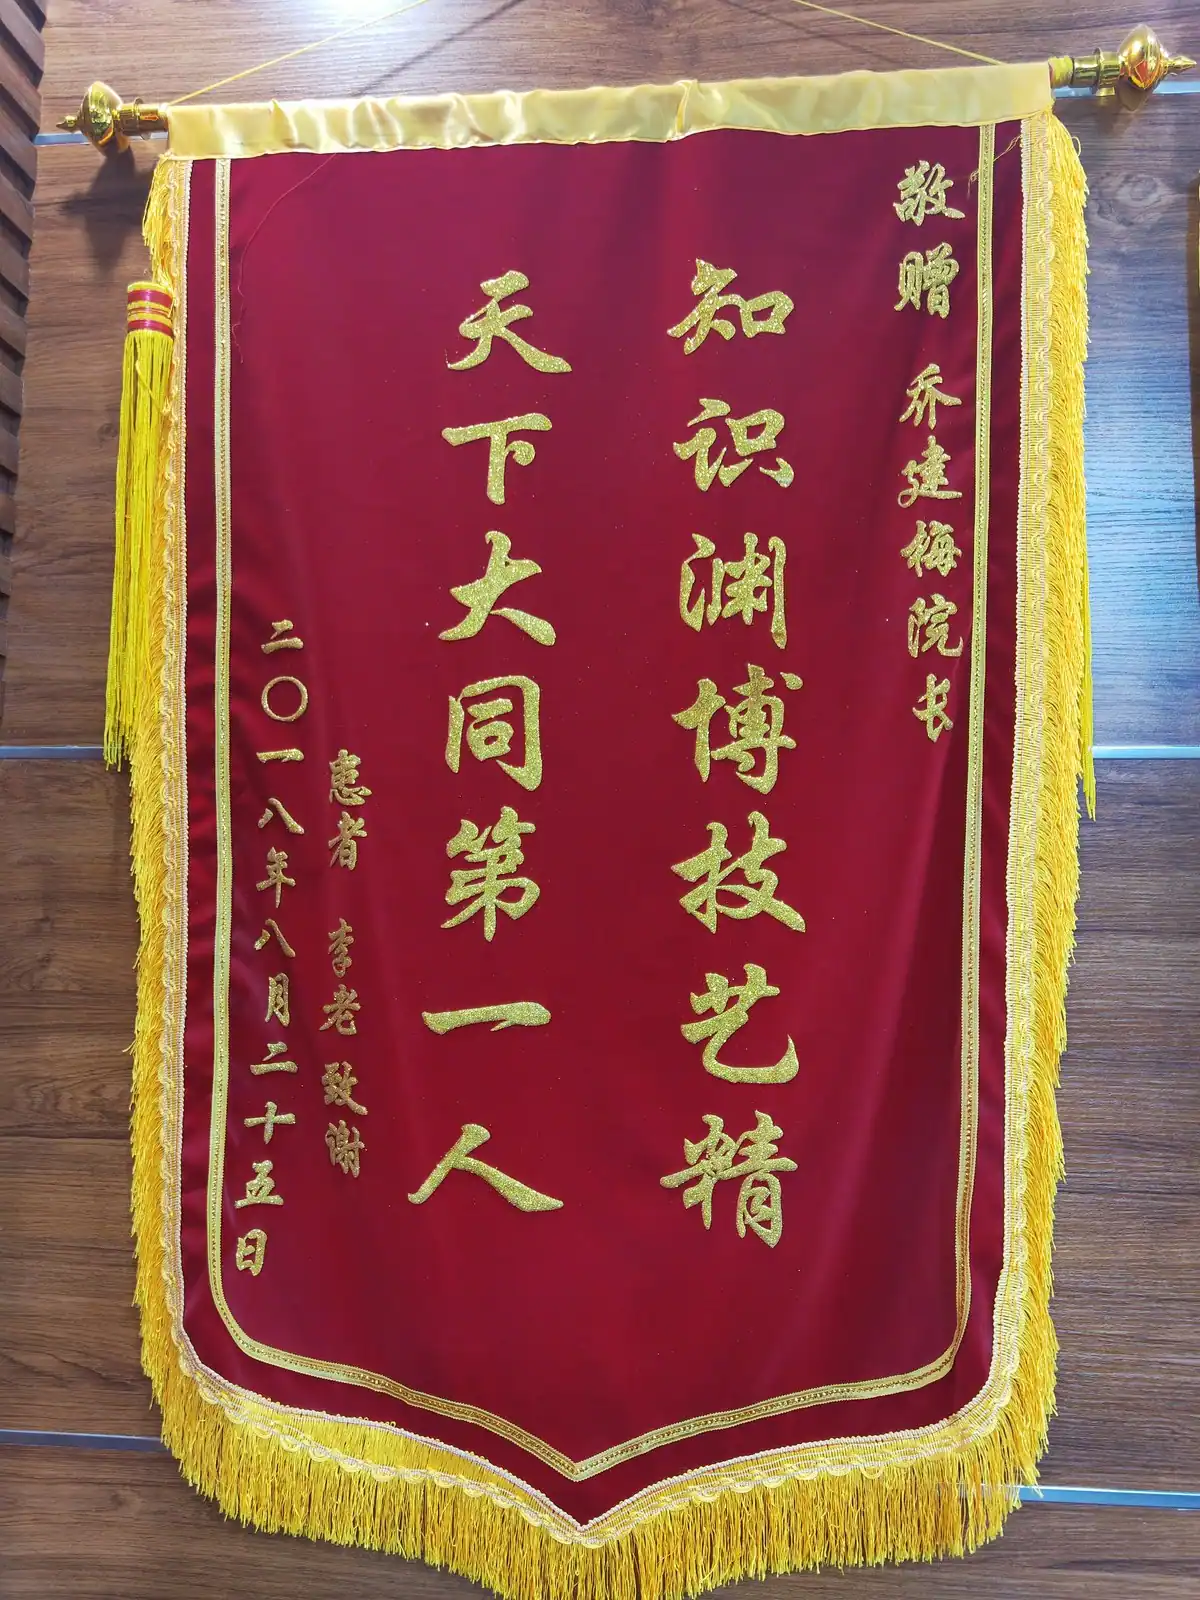 敬赠 乔建梅院长
知识渊博技艺精
天下大同第一人
患者 李老 致谢
二〇一八年八月二十五日